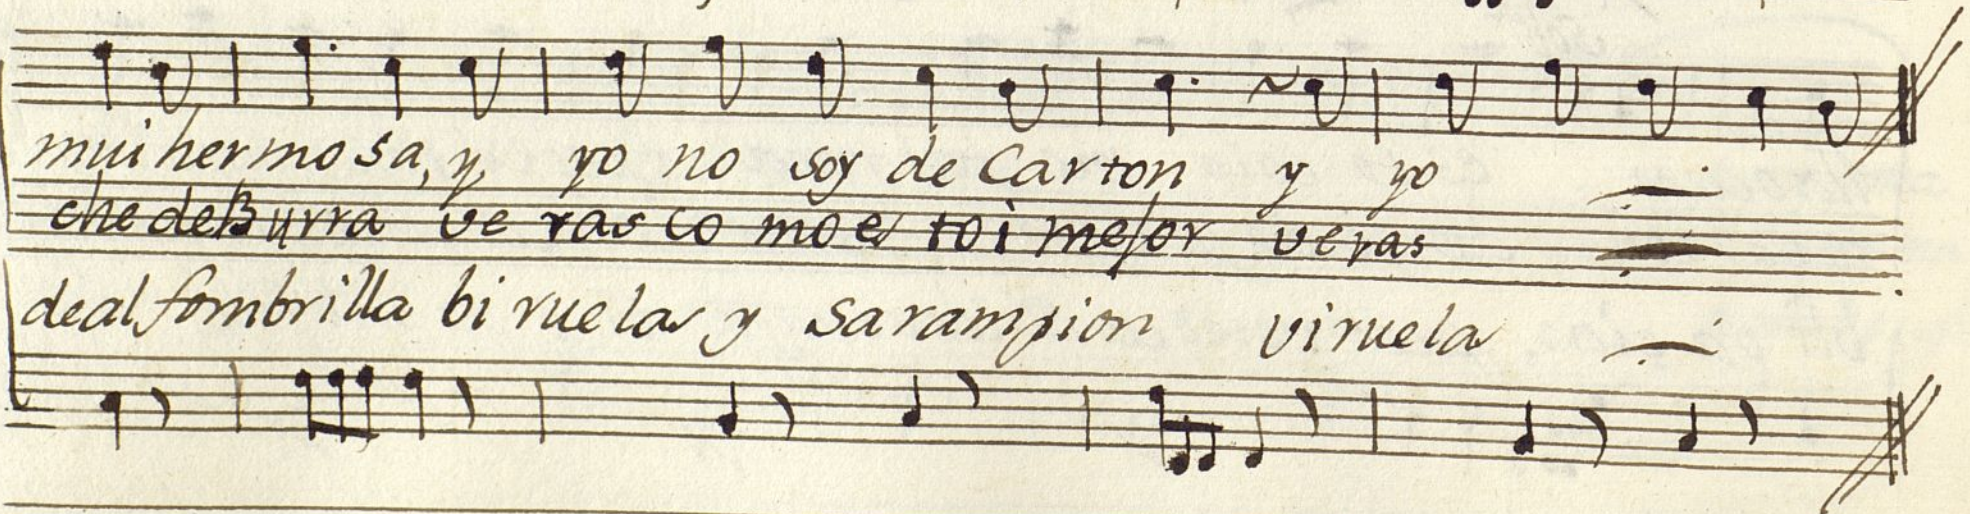 mui hermosa, y, yo no soy de Carton y yo
che de Burra ve ras co mo es toi mejor veras
de alfombrilla bi ruelas y sarampion viruela